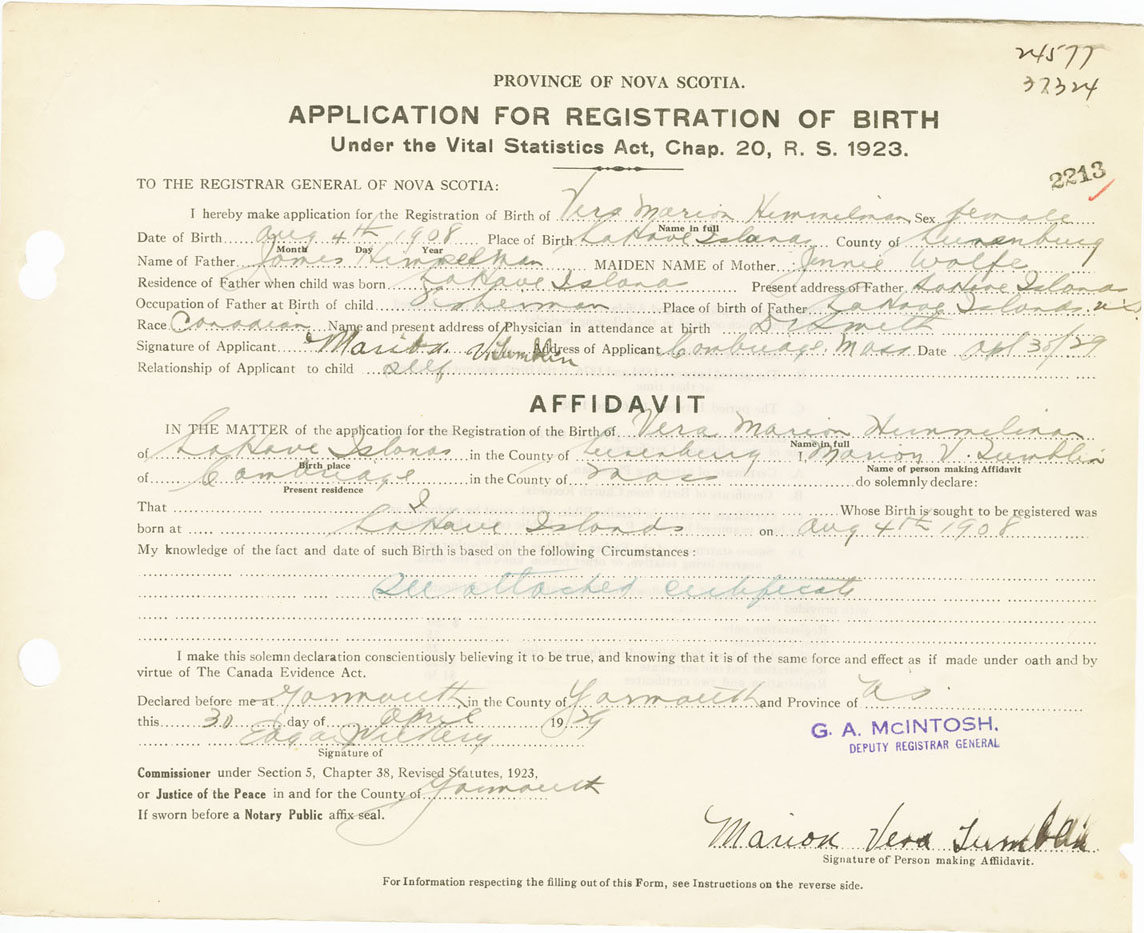 24577
37324
PROVINCE OF NOVA SCOTIA.
APPLICATION FOR REGISTRATION OF BIRTH
Under the Vital Statistics Act, Chap. 20, R. S. 1923.
2213
TO THE REGISTRAR GENERAL OF NOVA SCOTIA:
I hereby make application for the Registration of Birth of Vera Marion Himmelman Sex female
Name in full
Date of Birth Aug 4th 1908 Place of Birth LaHave Islands County of Lunenburg
Month Day Year
Name of Father James Himmelman MAIDEN NAME of Mother Jennie Wolfe
Residence of Father when child was born LaHave Islands Present address of Father LaHave Islands
Occupation of Father at Birth of child Fisherman Place of birth of Father LaHave Islands N.S.
Race Canadian Name and present address of Physician in attendance at birth Dr Smith
Signature of Applicant Marion V. Tumblin Address of Applicant Cambridge, Mass Date Apl 30/29
Relationship of Applicant to child self
AFFIDAVIT
IN THE MATTER of the application for the Registration of the Birth of Vera Marion Himmelman
Name in full
of LaHave Islands in the County of Lunenburg I, Marion V. Tumblin
Birth place Name of person making Affidavit
of Cambridge in the County of Mass do solemnly declare:
Present residence
That I Whose Birth is sought to be registered was
born at LaHave Islands on Aug 4th 1908
My knowledge of the fact and date of such Birth is based on the following Circumstances:
See attached certificate
I make this solemn declaration conscientiously believing it to be true, and knowing that it is of the same force and effect as if made under oath and by
virtue of The Canada Evidence Act.
Declared before me at Yarmouth in the County of Yarmouth and Province of N.S.
this 30 day of April 1929
G. A. McINTOSH.
DEPUTY REGISTRAR GENERAL
Edgar
Signature of
Commissioner under Section 5, Chapter 38, Revised Statutes, 1923,
or Justice of the Peace in and for the County of Yarmouth
If sworn before a Notary Public affix seal.
Marion Vera Tumblin
Signature of Person making Affidavit.
For Information respecting the filling out of this Form, see Instructions on the reverse side.